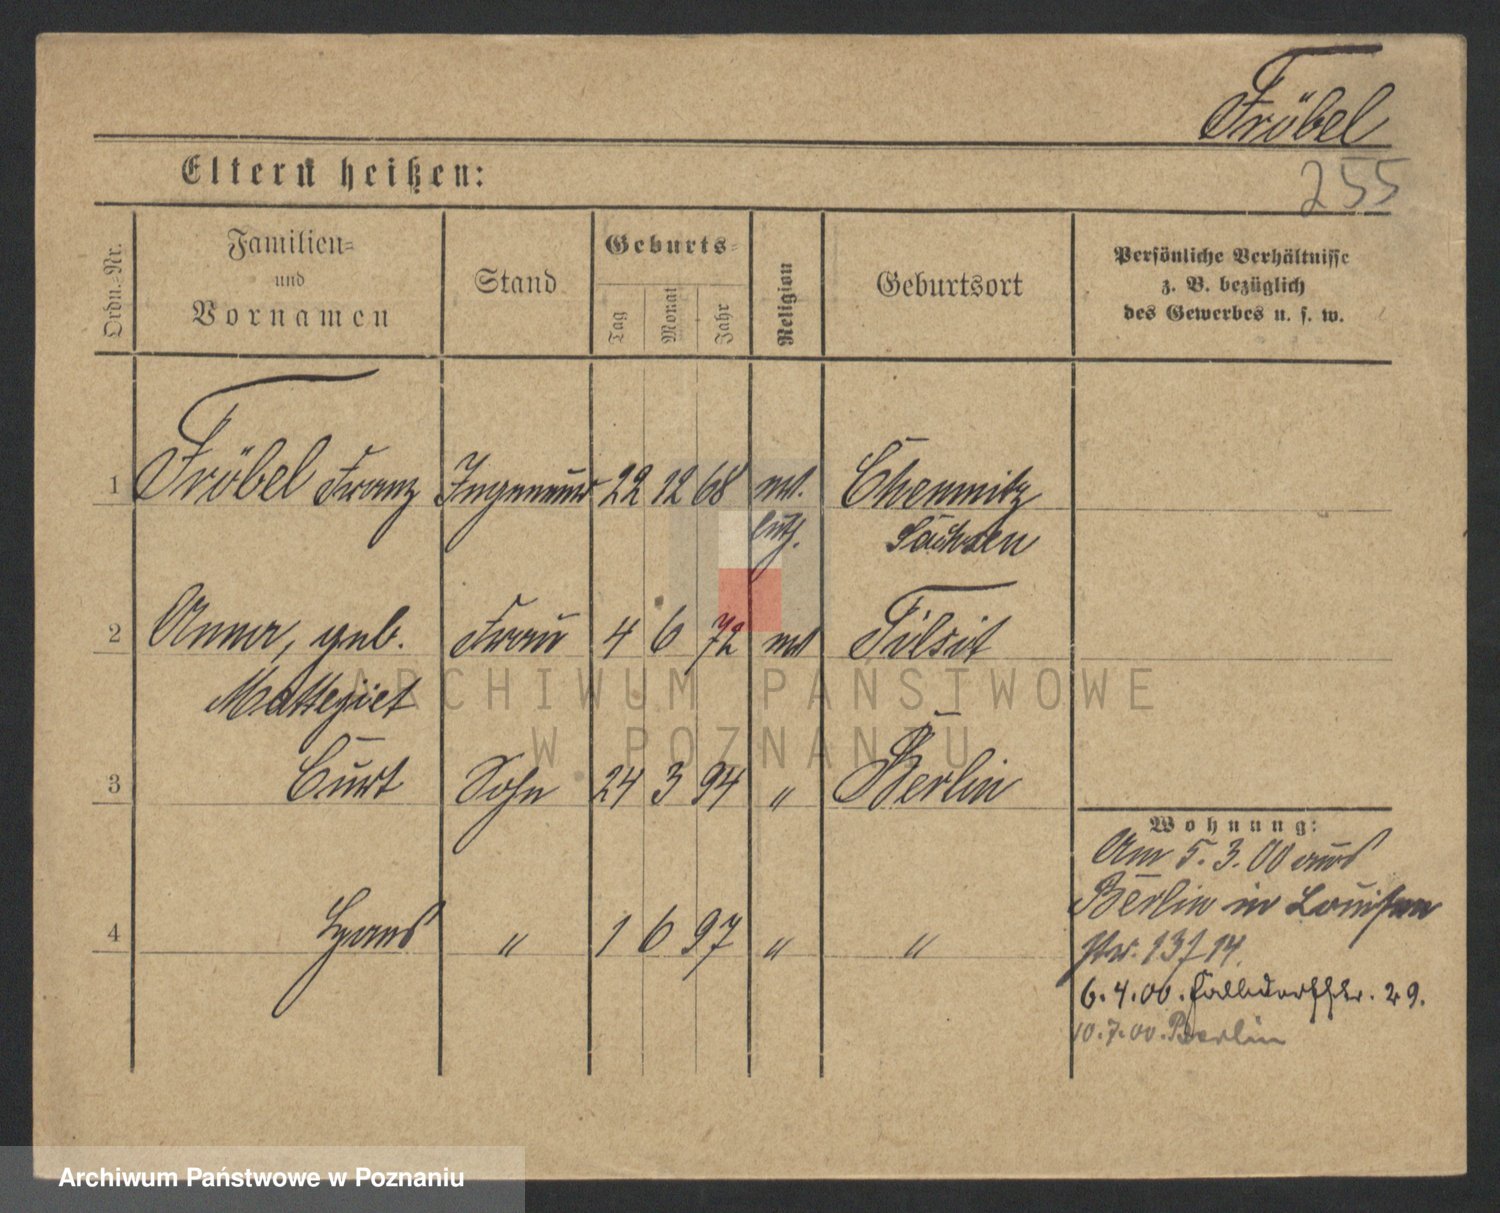 Fröbel
255
Eltern heißen:
Ordn.-Nr.
Familien-
und
Vornamen
Stand
Geburts-
Tag
Monat
Jahr
Religion
Geburtsort
Persönliche Verhältnisse
z. B. bezüglich
des Gewerbes u. s. w.
1 Fröbel Franz Ingenieur 22 12 68 ev. Chemnitz
luth. Sachsen
2 Anna, geb. Frau 4 6 72 ev Tilsit
3 Curt Sohn 24 3 94 " Berlin
4 Hans " 1 6 97 " "
Wohnung:
Am 5.3.00 aus
Berlin in Louisen
str. 13/14.
6.4.00. 29.
10.7.00. Berlin
ARCHIWUM PAŃSTWOWE
W POZNANIU
Archiwum Państwowe w Poznaniu